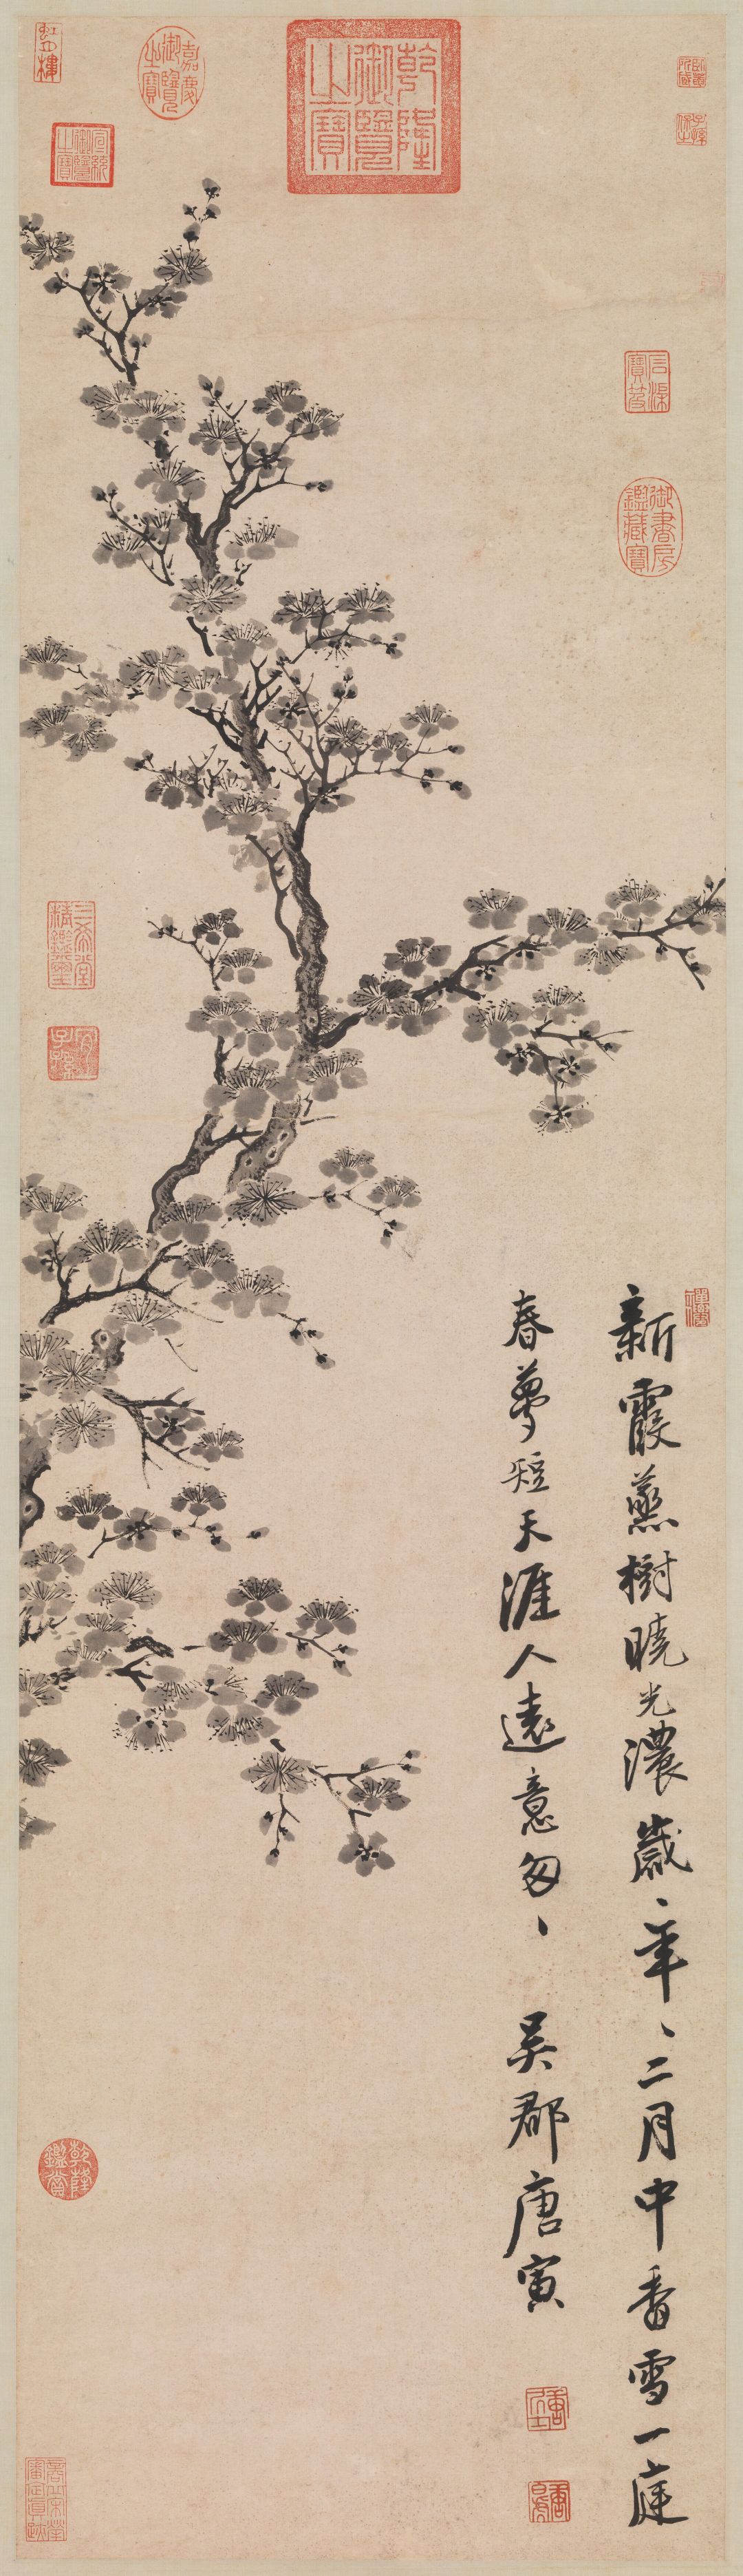 新霞蒸樹曉光濃歲、年、二月中香雪一庭
春夢短天涯人遠意匆、 吳郡唐寅
乾隆御覽之寶
嘉慶御覽之寶
宣統御覽之寶
石渠寶笈
御書房鑑藏寶
三希堂精鑑璽
宜子孫
乾隆鑑賞
唐居士
商丘宋犖審定真蹟